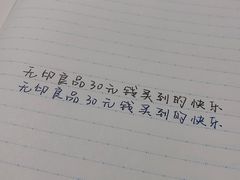 无印良品30元钱买到的快乐
无印良品30元钱买到的快乐